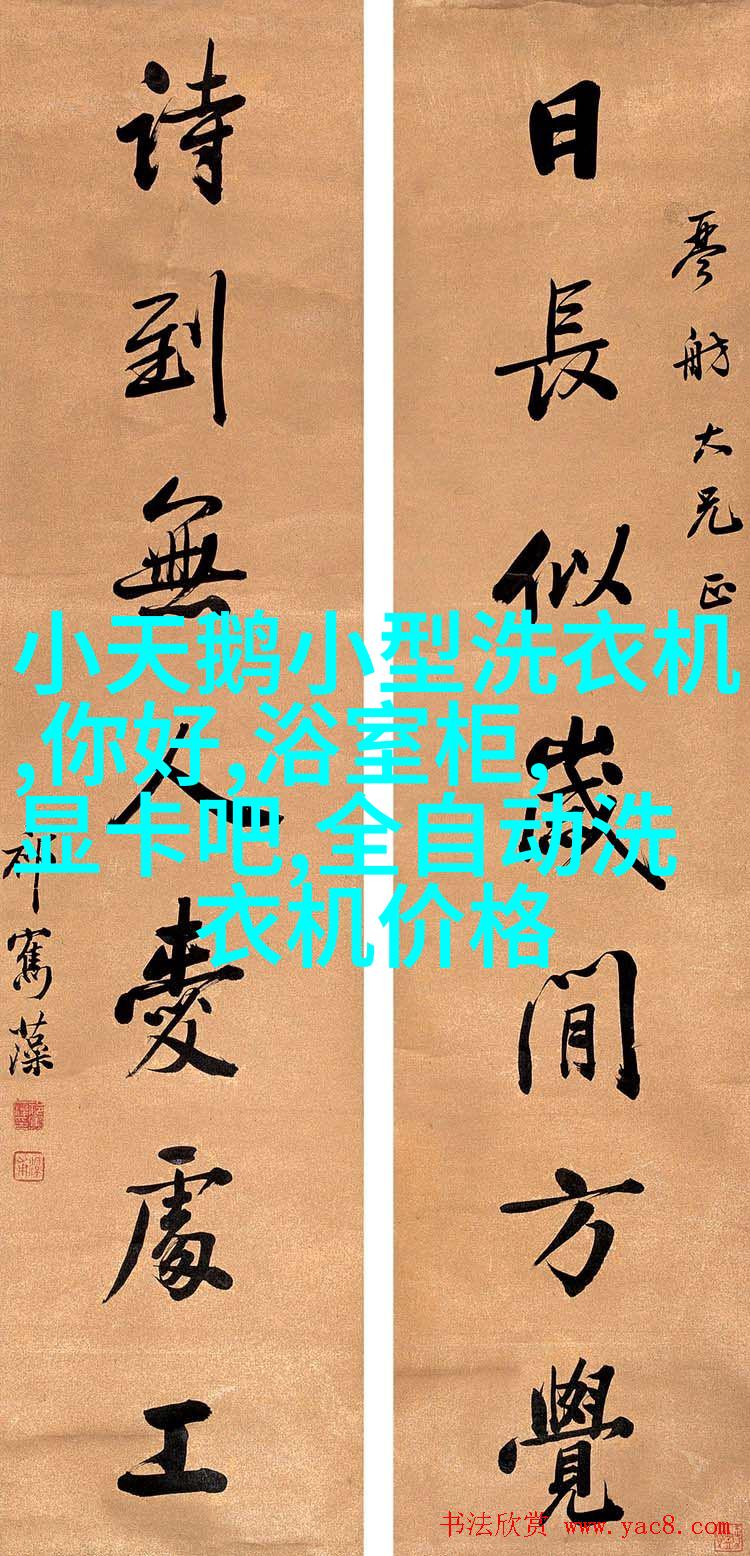 琴舫大兄正
日長似歲閒方覺
詩到無人愛處工
祁寯藻
小天鹅小型洗衣机
,你好,浴室柜,
显卡吧,全自动洗
衣机价格
书法欣赏 www.yac8.com